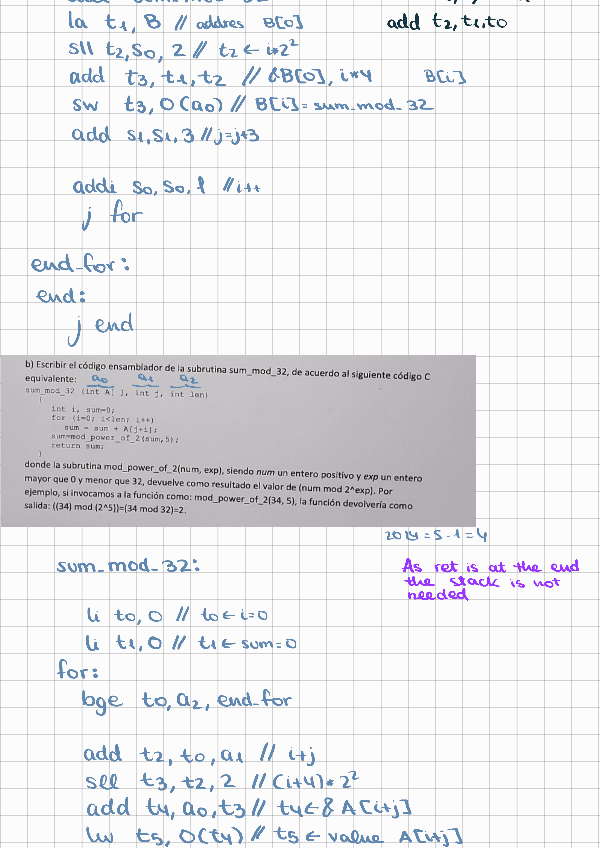 la t1, B // addres B[0] add t2,t1,t0
sll t2,S0, 2 // t2 ← i*2²
add t3, t1, t2 // &B[0], i*4 B[i]
sw t3, 0(a0) // B[i] = sum_mod_32
add s1,S1, 3 // j=j+3
addi S0, S0, 1 // i++
j for
end_for:
end:
j end
b) Escribir el código ensamblador de la subrutina sum_mod_32, de acuerdo al siguiente código C
equivalente: a0 a1 a2
sum_mod_32 (int A[ ], int j, int len)
{
int i, sum=0;
for (i=0; i<len; i++)
sum = sum + A[j+i];
sum=mod_power_of_2(sum,5);
return sum;
}
donde la subrutina mod_power_of_2(num, exp), siendo num un entero positivo y exp un entero
mayor que 0 y menor que 32, devuelve como resultado el valor de (num mod 2^exp). Por
ejemplo, si invocamos a la función como: mod_power_of_2(34, 5), la función devolvería como
salida: ((34) mod (2^5))=(34 mod 32)=2.
= 5-1=4
sum_mod_32: As ret is at the end
the stack is not
needed
li t0, 0 // t0 ← i=0
li t1, 0 // t1 ← sum=0
for:
bge t0, a2, end_for
add t2, t0, a1 // i+j
sll t3, t2, 2 // (i+4)*2²
add t4, a0, t3 // t4 ← & A[i+j]
lw t5, 0(t4) // t5 ← value A[i+j]